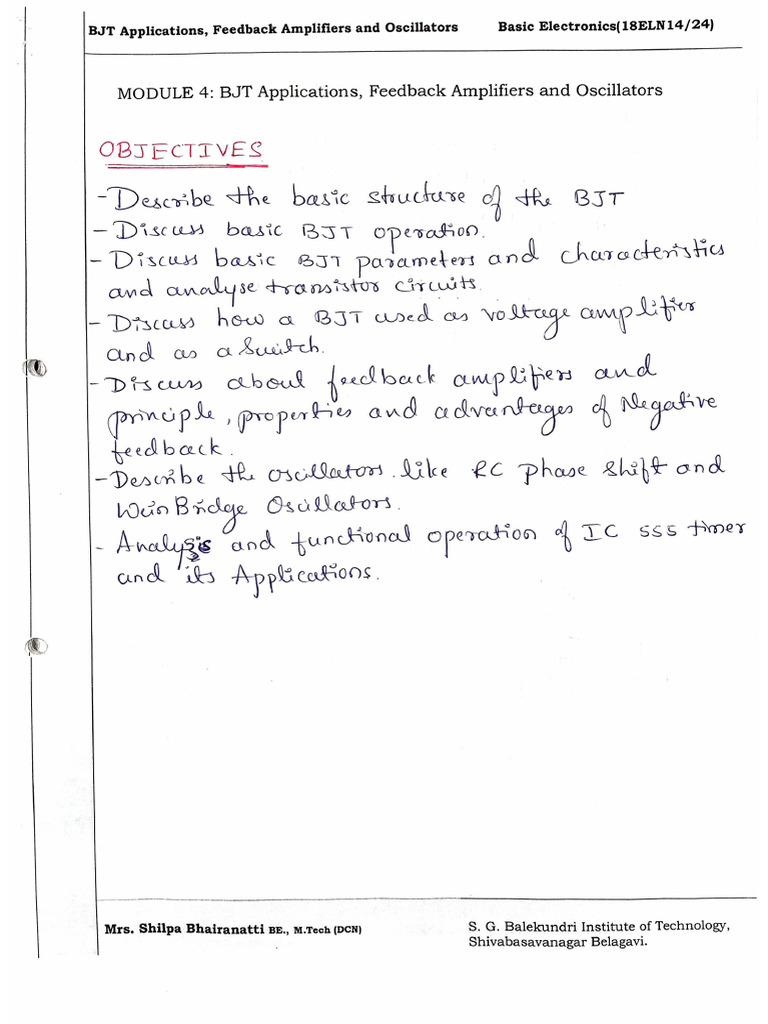 BJT Applications, Feedback Amplifiers and Oscillators Basic Electronics(18ELN14/24)
MODULE 4: BJT Applications, Feedback Amplifiers and Oscillators
OBJECTIVES
- Describe the basic structure of the BJT
- Discuss basic BJT operation.
- Discuss basic BJT parameters and characteristics
and analyse transistor circuits.
- Discuss how a BJT used as voltage amplifier
and as a switch.
- Discuss about feedback amplifiers and
principle, properties and advantages of Negative
feedback.
- Describe the oscillators like RC phase shift and
Wein Bridge Oscillators.
- Analysis and functional operation of IC 555 timer
and its Applications.
Mrs. Shilpa Bhairanatti BE., M.Tech (DCN) S. G. Balekundri Institute of Technology,
Shivabasavanagar Belagavi.